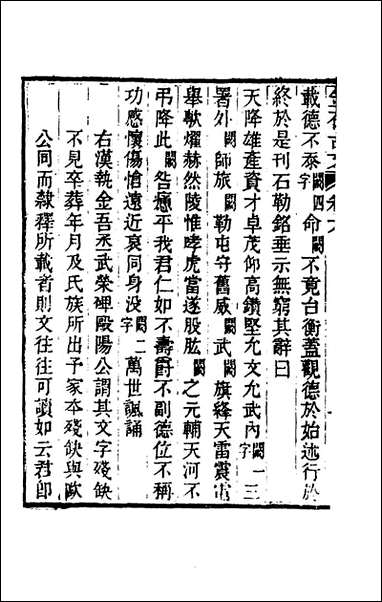 金石古文 卷六
載德不忝闕四字命闕不竟台衡蓋觀德於始述行於
終於是刊石勒銘垂示無窮其辭曰
天降雄產資才卓茂仰高鑽堅允文允武內闕一三字
署外闕師旅闕勒屯守舊威闕武闕旗絳天雷震電
舉歘燿赫然陵惟哮虎當遂股肱闕之元輔天河不
弔降此闕咎慭乎我君仁如不壽爵不副德位不稱
功感懷傷愴遠近哀同身没闕二字萬世諷誦
右漢執金吾丞武榮碑歐陽公謂其文字殘缺
不見卒葬年月及氏族所出予家夲殘缺與歐
公同而隸釋所載者則文往往可讀如云君卽